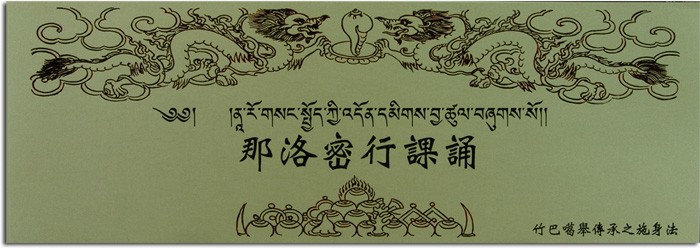 ༄༅། །ནཱ་རོ་གསང་སྤྱོད་ཀྱི་འདོན་དམིགས་བྱ་ཚུལ་བཞུགས་སོ།།
那洛密行課誦
竹巴噶舉傳承之施身法